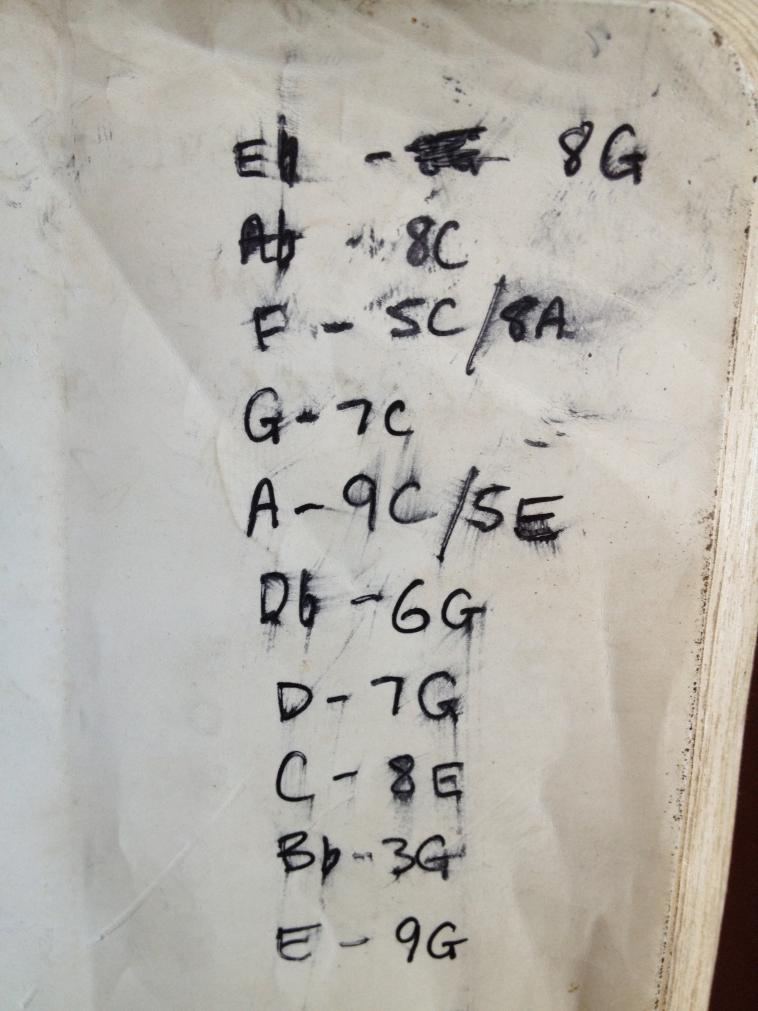 Eb - 8G
Ab - 8C
F - 5C/8A
G - 7C
A - 9C/5E
Db - 6G
D - 7G
C - 8E
Bb - 3G
E - 9G